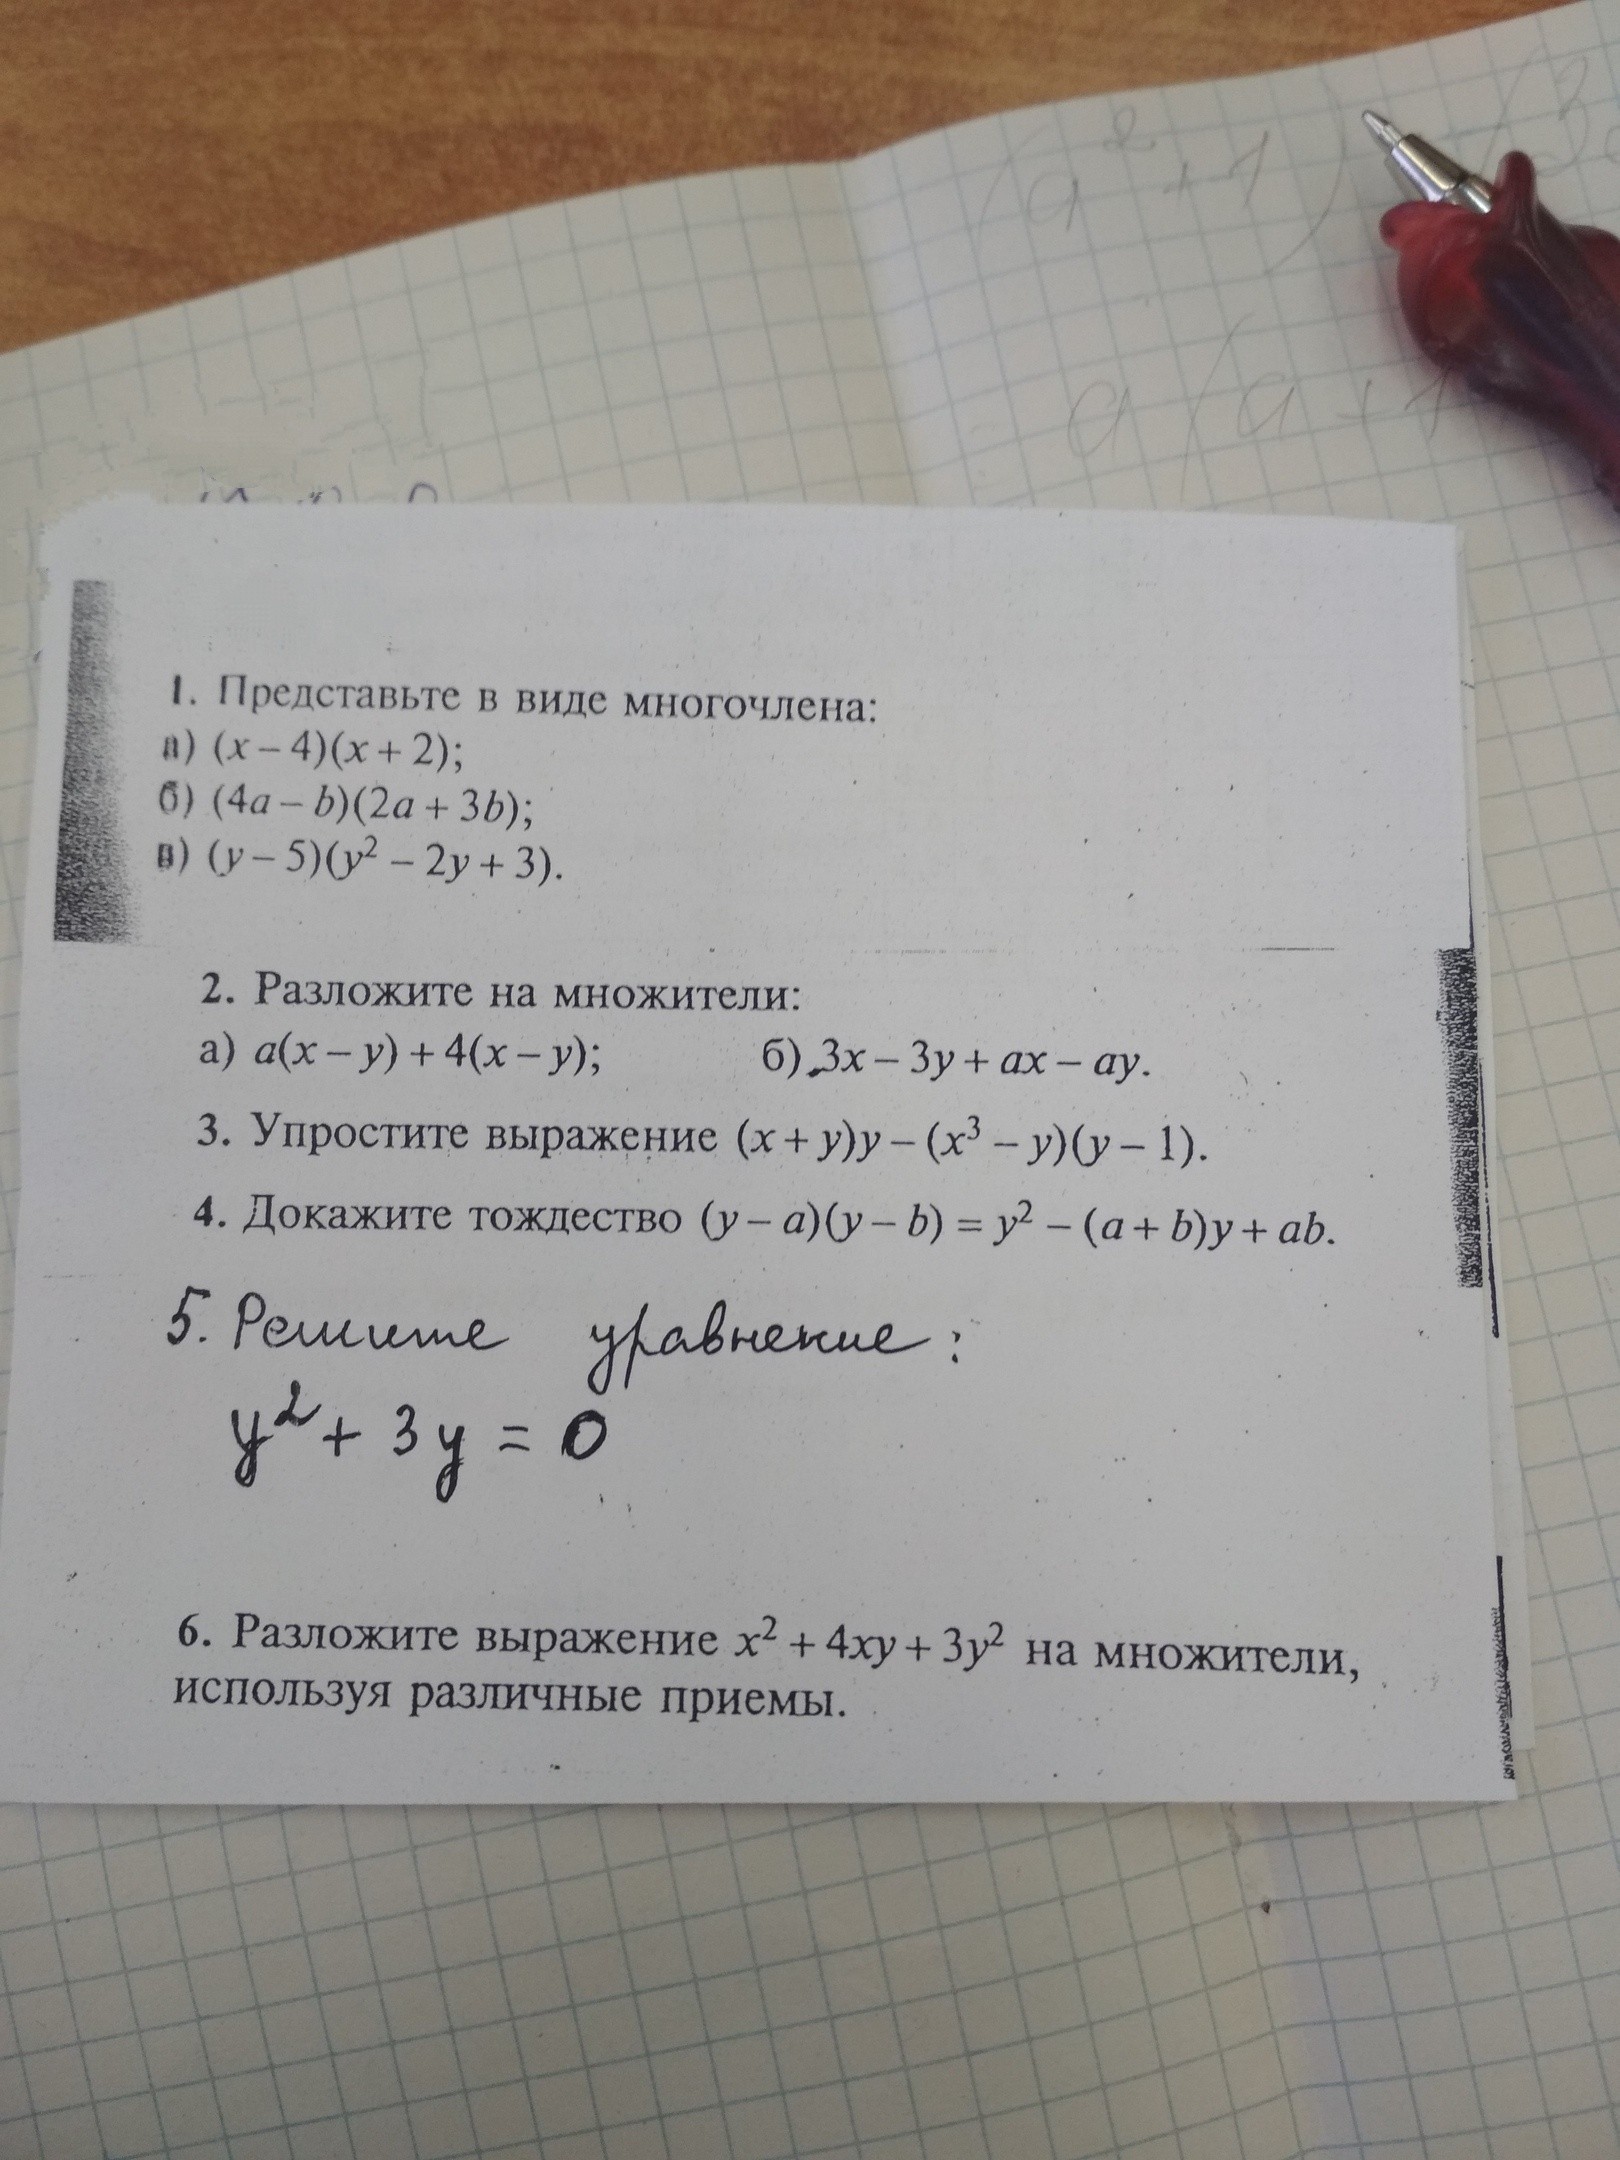 (a² + 1)
a(a + 1
1. Представьте в виде многочлена:
а) (x – 4)(x + 2);
б) (4a – b)(2a + 3b);
в) (y – 5)(y² – 2y + 3).
2. Разложите на множители:
а) a(x – y) + 4(x – y); б) 3x – 3y + ax – ay.
3. Упростите выражение (x + y)y – (x³ – y)(y – 1).
4. Докажите тождество (y – a)(y – b) = y² – (a + b)y + ab.
5. Решите уравнение:
y² + 3y = 0
6. Разложите выражение x² + 4xy + 3y² на множители,
используя различные приемы.